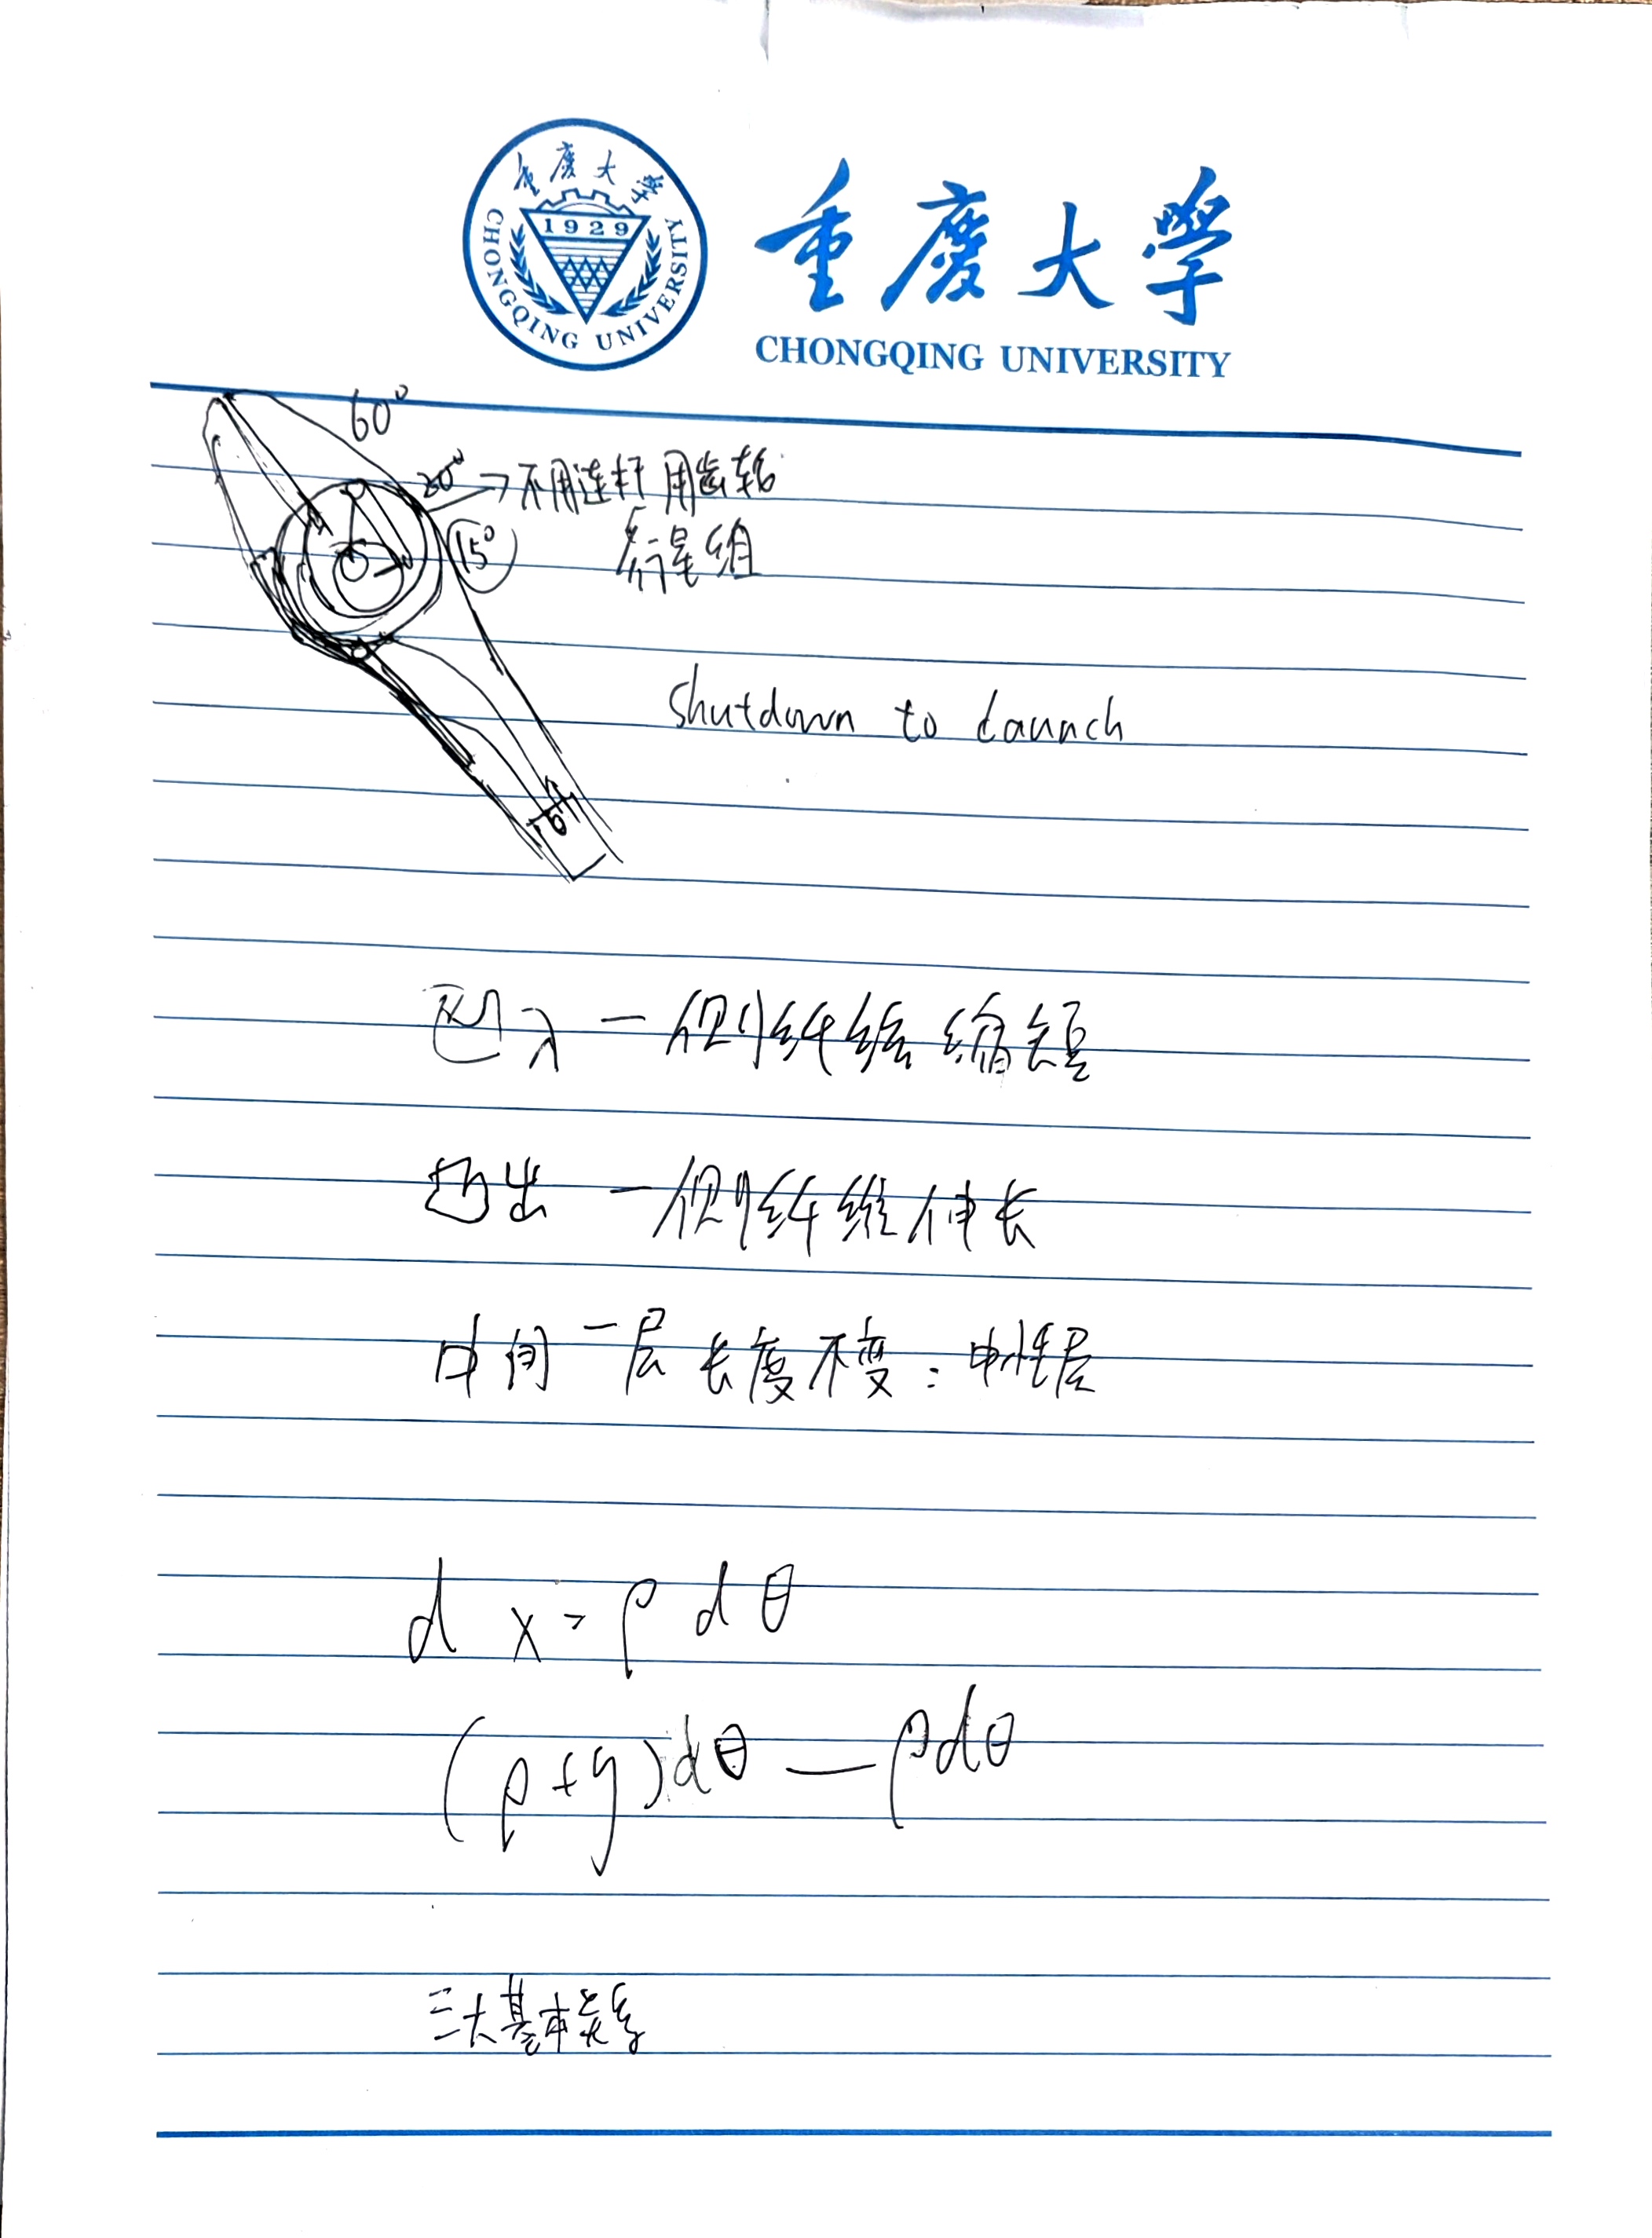 重慶大學
1929
CHONGQING UNIVERSITY
重慶大學
CHONGQING UNIVERSITY
60°
20° → 不用连杆 用齿轮
15° 行星组
shutdown to launch
凹入一侧纤维缩短
凸出一侧纤维伸长
中间一层长度不变:中性层
d x = ρ d θ
(ρ+y)dθ — ρdθ
三大基本关系